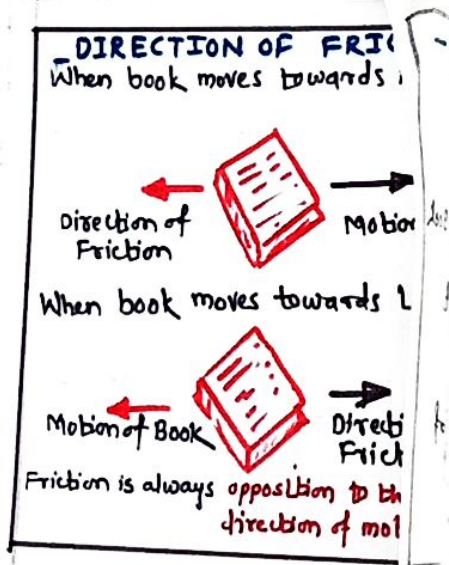 DIRECTION OF FRI
When book moves towards
Direction of
Friction
Motion
When book moves towards L
Motion of Book
Directi
Frict
Friction is always opposition to th
direction of mot